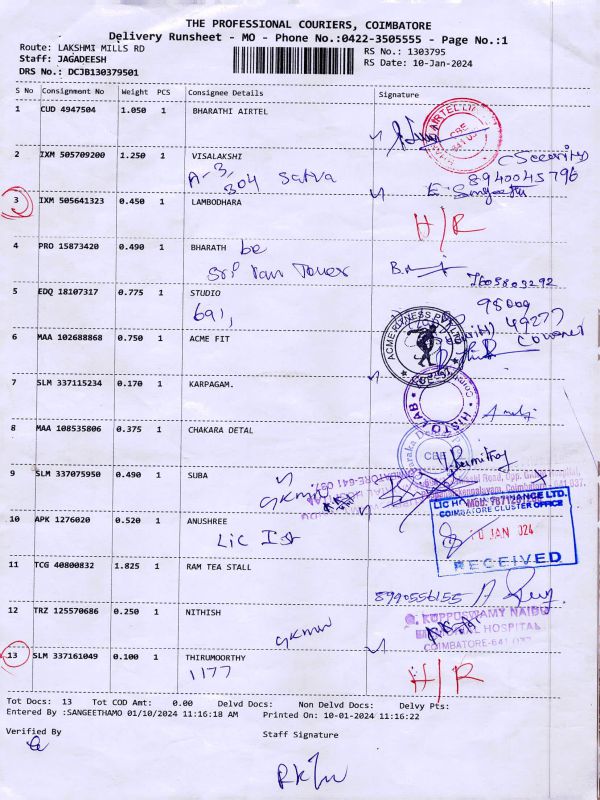 THE PROFESSIONAL COURIERS, COIMBATORE
Delivery Runsheet - MO - Phone No.:0422-3505555 - Page No.:1
Route: LAKSHMI MILLS RD
RS No.: 1303795
Staff: JAGADEESH
RS Date: 10-Jan-2024
DRS No.: DCJB130379501
S No Consignment No Weight PCS Consignee Details Signature
1 CUD 4947504 1.050 1 BHARATHI AIRTEL
2 IXM 505709200 1.250 1 VISALAKSHI
A-3, 304 Satva
CSecurity
8940045796
E. Sangeetha
3 IXM 505641323 0.450 1 LAMBODHARA
H/R
4 PRO 15873420 0.490 1 BHARATH be
Sri Ram Tower
5 EDQ 18107317 0.775 1 STUDIO
691,
98009
49277
6 MAA 102688868 0.750 1 ACME FIT
ACME FITNESS PVT LTD
7 SLM 337115234 0.170 1 KARPAGAM.
HISTO LAB
8 MAA 108535806 0.375 1 CHAKARA DETAL
CBE
9 SLM 337075950 0.490 1 SUBA
GKNM
10 APK 1276020 0.520 1 ANUSHREE
Lic Ist
LIC HOUSING FINANCE LTD.
COIMBATORE CLUSTER OFFICE
10 JAN 2024
RECEIVED
11 TCG 40800832 1.825 1 RAM TEA STALL
8990556155
12 TRZ 125570686 0.250 1 NITHISH
GKNM
G. KUPPUSWAMY NAIDU
MEMORIAL HOSPITAL
COIMBATORE-641 037
13 SLM 337161049 0.100 1 THIRUMOORTHY
1177
H/R
Tot Docs: 13 Tot COD Amt: 0.00 Delvd Docs: Non Delvd Docs: Delvy Pts:
Entered By :SANGEETHAMO 01/10/2024 11:16:18 AM Printed On: 10-01-2024 11:16:22
Verified By
Staff Signature